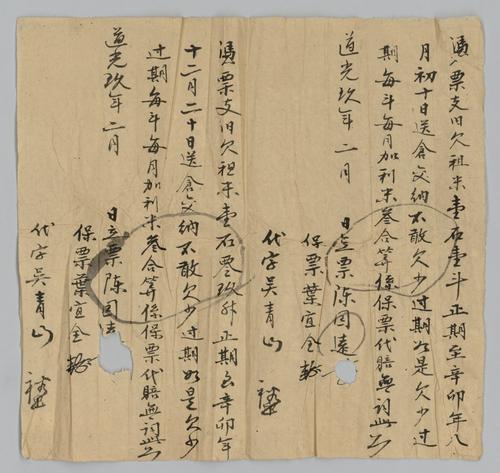 憑票支旧欠租米壹石壹斗正期至辛卯年八
月初十日送倉交納不敢欠少过期如是欠少过
期每斗每月加利米叁合筭係保票代賠無詞此云
道光玖年二月 日立票陳因遠
保票葉宜全
代字吴青山
憑票支旧欠租米壹石叁斗玖升正期至辛卯年
十二月二十日送倉交納不敢欠少过期如是欠少
过期每斗每月加利米叁合筭係保票代賠無詞此云
道光玖年二月 日立票陳因法
保票葉宜全
代字吴青山